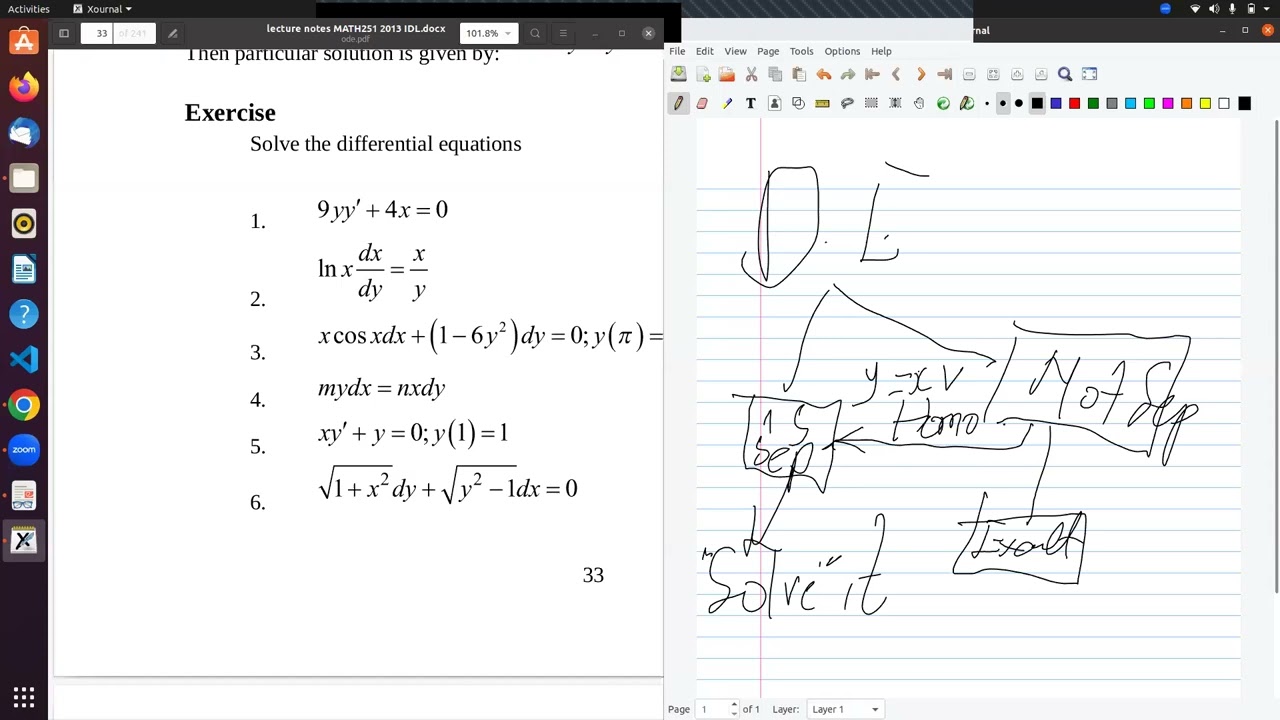 Activities
Xournal
nal
33
of 241
lecture notes MATH251 2013 IDL.docx
ode.pdf
101.8%
Then particular solution is given by:
Exercise
Solve the differential equations
1. 9yy′ + 4x = 0
2. ln x dx/dy = x/y
3. x cos xdx + (1 − 6y²)dy = 0; y(π) =
4. mydx = nxdy
5. xy′ + y = 0; y(1) = 1
6. √(1 + x²)dy + √(y² − 1)dx = 0
33
File Edit View Page Tools Options Help
D. E
y = xv
Homo
Not Sep
1 S
Sep
Exact
Solve it
Page 1 of 1 Layer: Layer 1
zoom